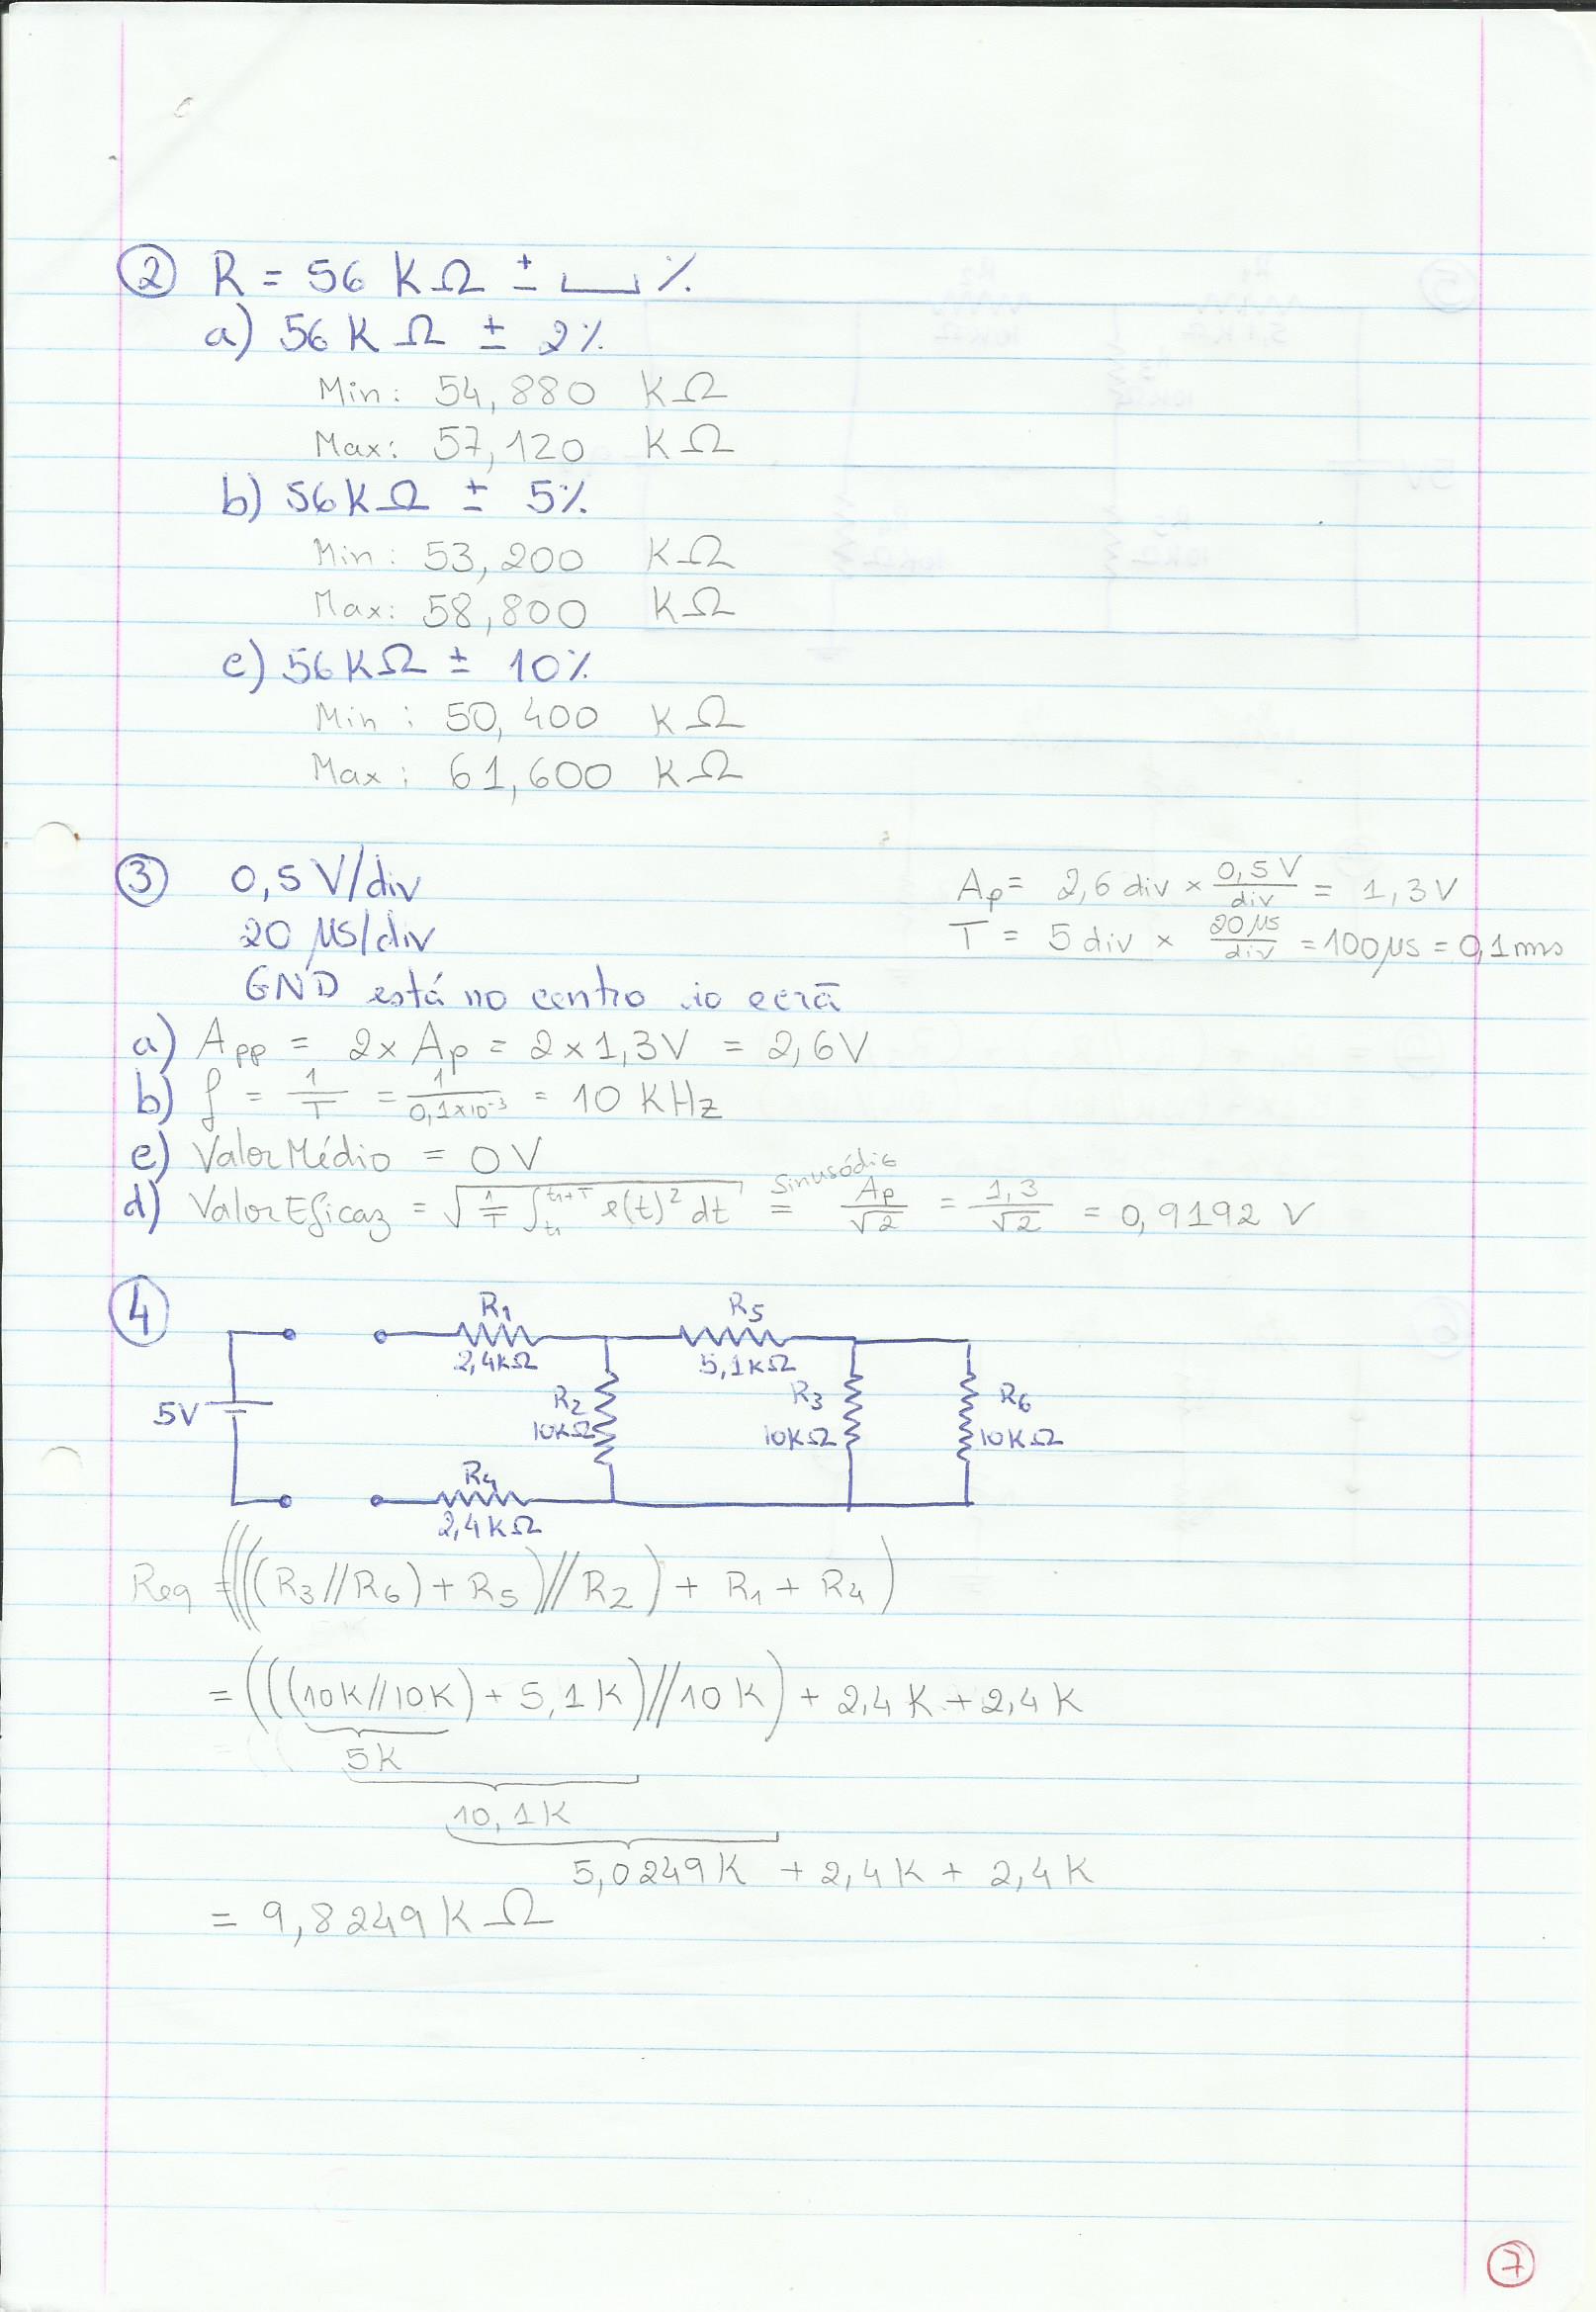 ② R = 56 KΩ ± ⎵ %
a) 56 K Ω ± 2%
Min: 54,880 KΩ
Max: 57,120 KΩ
b) 56KΩ ± 5%
Min: 53,200 KΩ
Max: 58,800 KΩ
c) 56KΩ ± 10%
Min: 50,400 KΩ
Max: 61,600 KΩ
③ 0,5 V/div
20 μs/div
GND está no centro do ecrã
Ap = 2,6 div × 0,5 V/div = 1,3 V
T = 5 div × 20μs/div = 100μs = 0,1 ms
a) App = 2 x Ap = 2 x 1,3V = 2,6V
b) f = 1/T = 1/(0,1×10⁻³) = 10 KHz
c) Valor Médio = 0 V
d) Valor Eficaz = √(1/T ∫t1^(t1+T) e(t)² dt) = Ap/√2 = 1,3/√2 = 0,9192 V
④
R1
2,4KΩ
R5
5,1KΩ
5V
R2
10KΩ
R3
10KΩ
R6
10KΩ
R4
2,4KΩ
Req = ((((R3//R6) + R5)//R2) + R1 + R4)
= (((10K//10K) + 5,1K)//10K) + 2,4K + 2,4K
5K
10,1K
5,0249K + 2,4K + 2,4K
= 9,8249KΩ
⑦